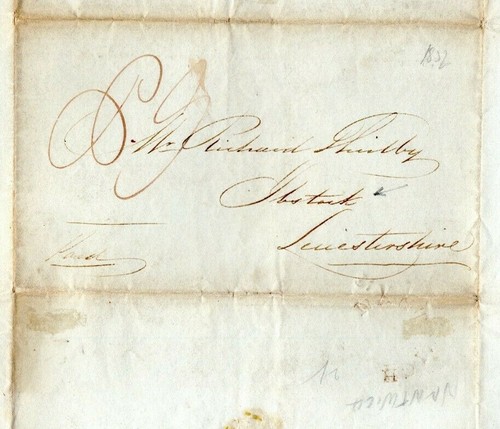 1832
Pd 9
Mr Richard Thirlby
Ibstock
Leicestershire
Paid
H
NANTWICH